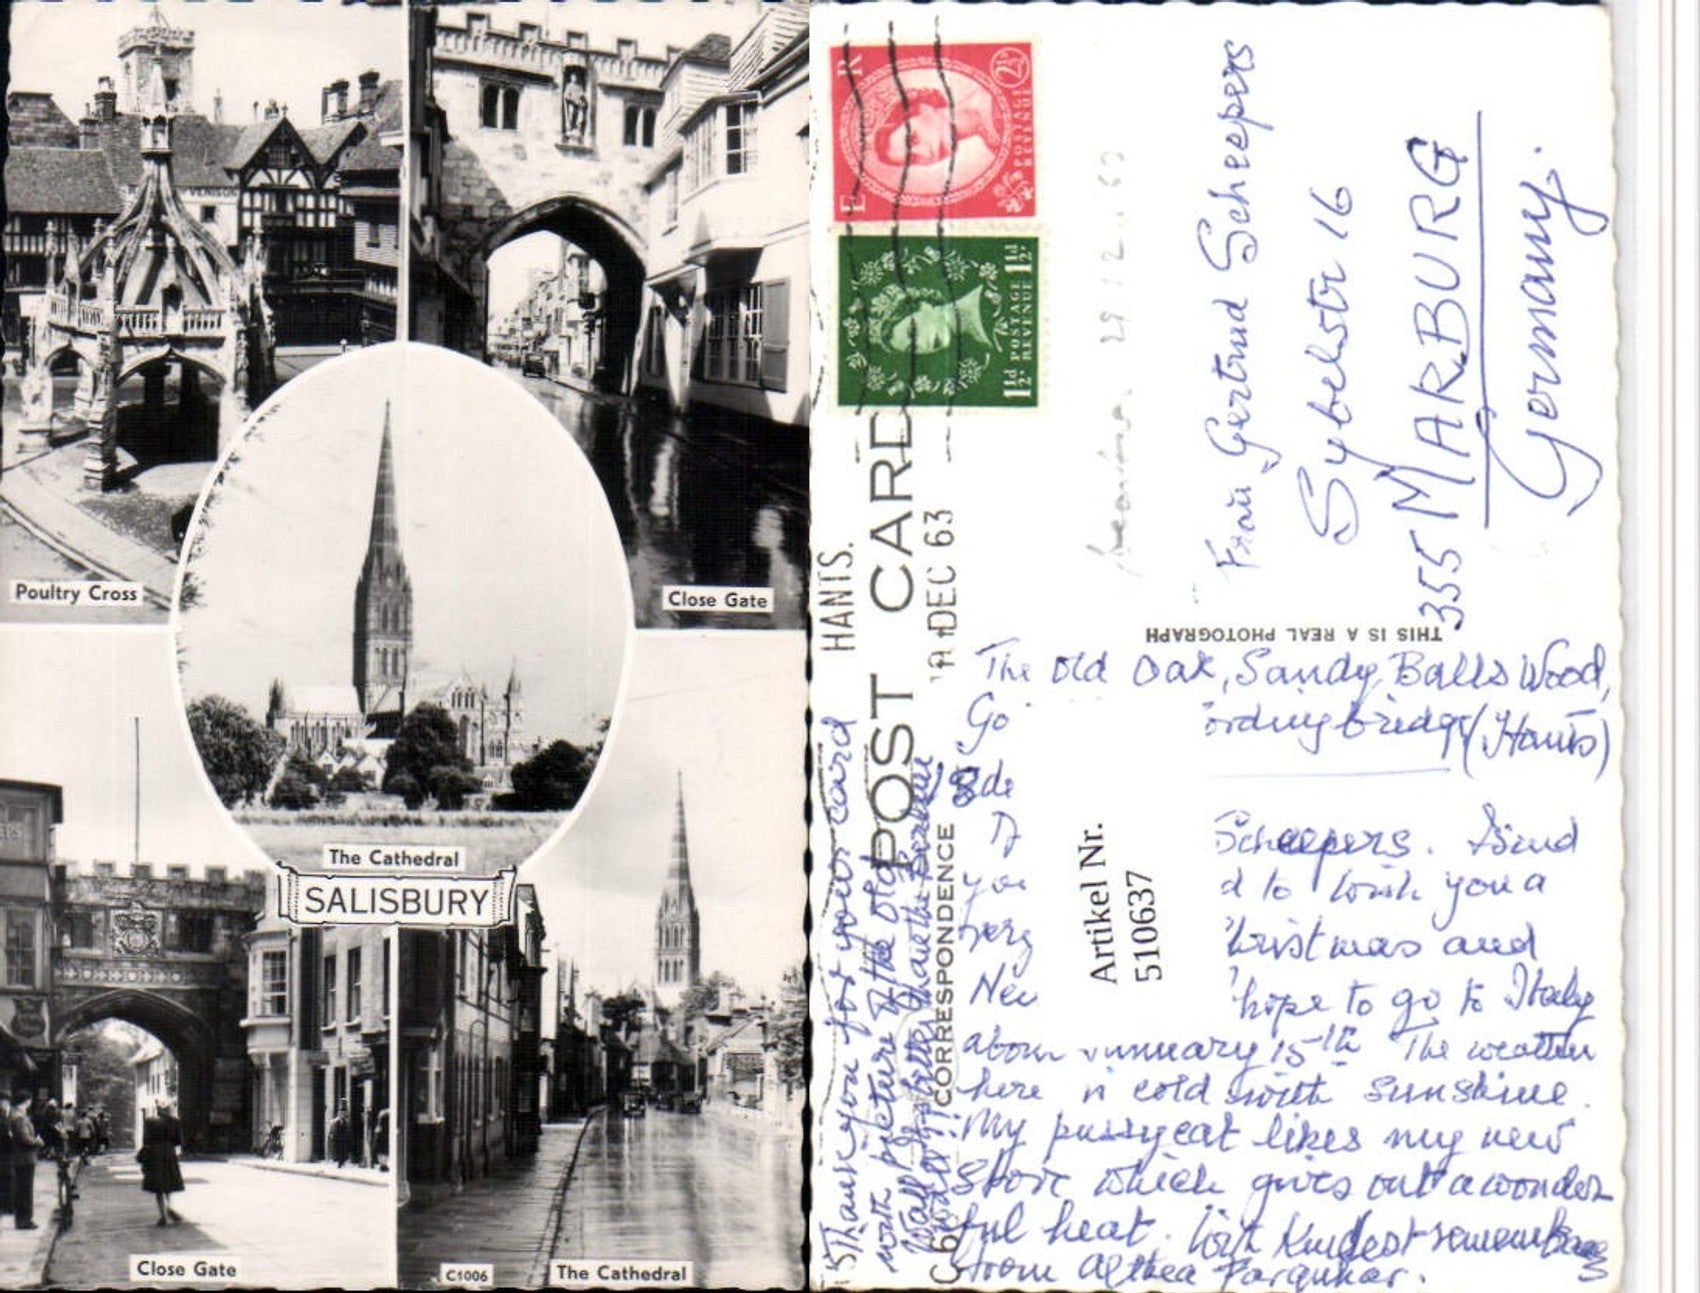 Poultry Cross
Close Gate
The Cathedral
SALISBURY
Close Gate
C1006
The Cathedral
VENISON
E R
2½D
POSTAGE
REVENUE
1½D POSTAGE 1½D
REVENUE
HANTS.
DEC 63
POST CARD
CORRESPONDENCE
THIS IS A REAL PHOTOGRAPH
28.12.63
Frau Gertrud Scheepers
Sybelstr 16
355 MARBURG
Germany.
The Old Oak, Sandy Balls Wood,
Go ordingbridge (Hants)
18 de
Scheepers.
you d to wish you a
very hristmas and
New hope to go to Italy
about January 15th The weather
here is cold with sunshine.
My pussycat likes my new
stove which gives out a wonder
ful heat. With kindest remembrances
from Althea Farquhar.
Thank you for your card
with picture of the old
Wall
Artikel Nr.
510637